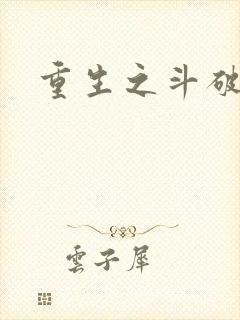 重生之斗破
雲子犀